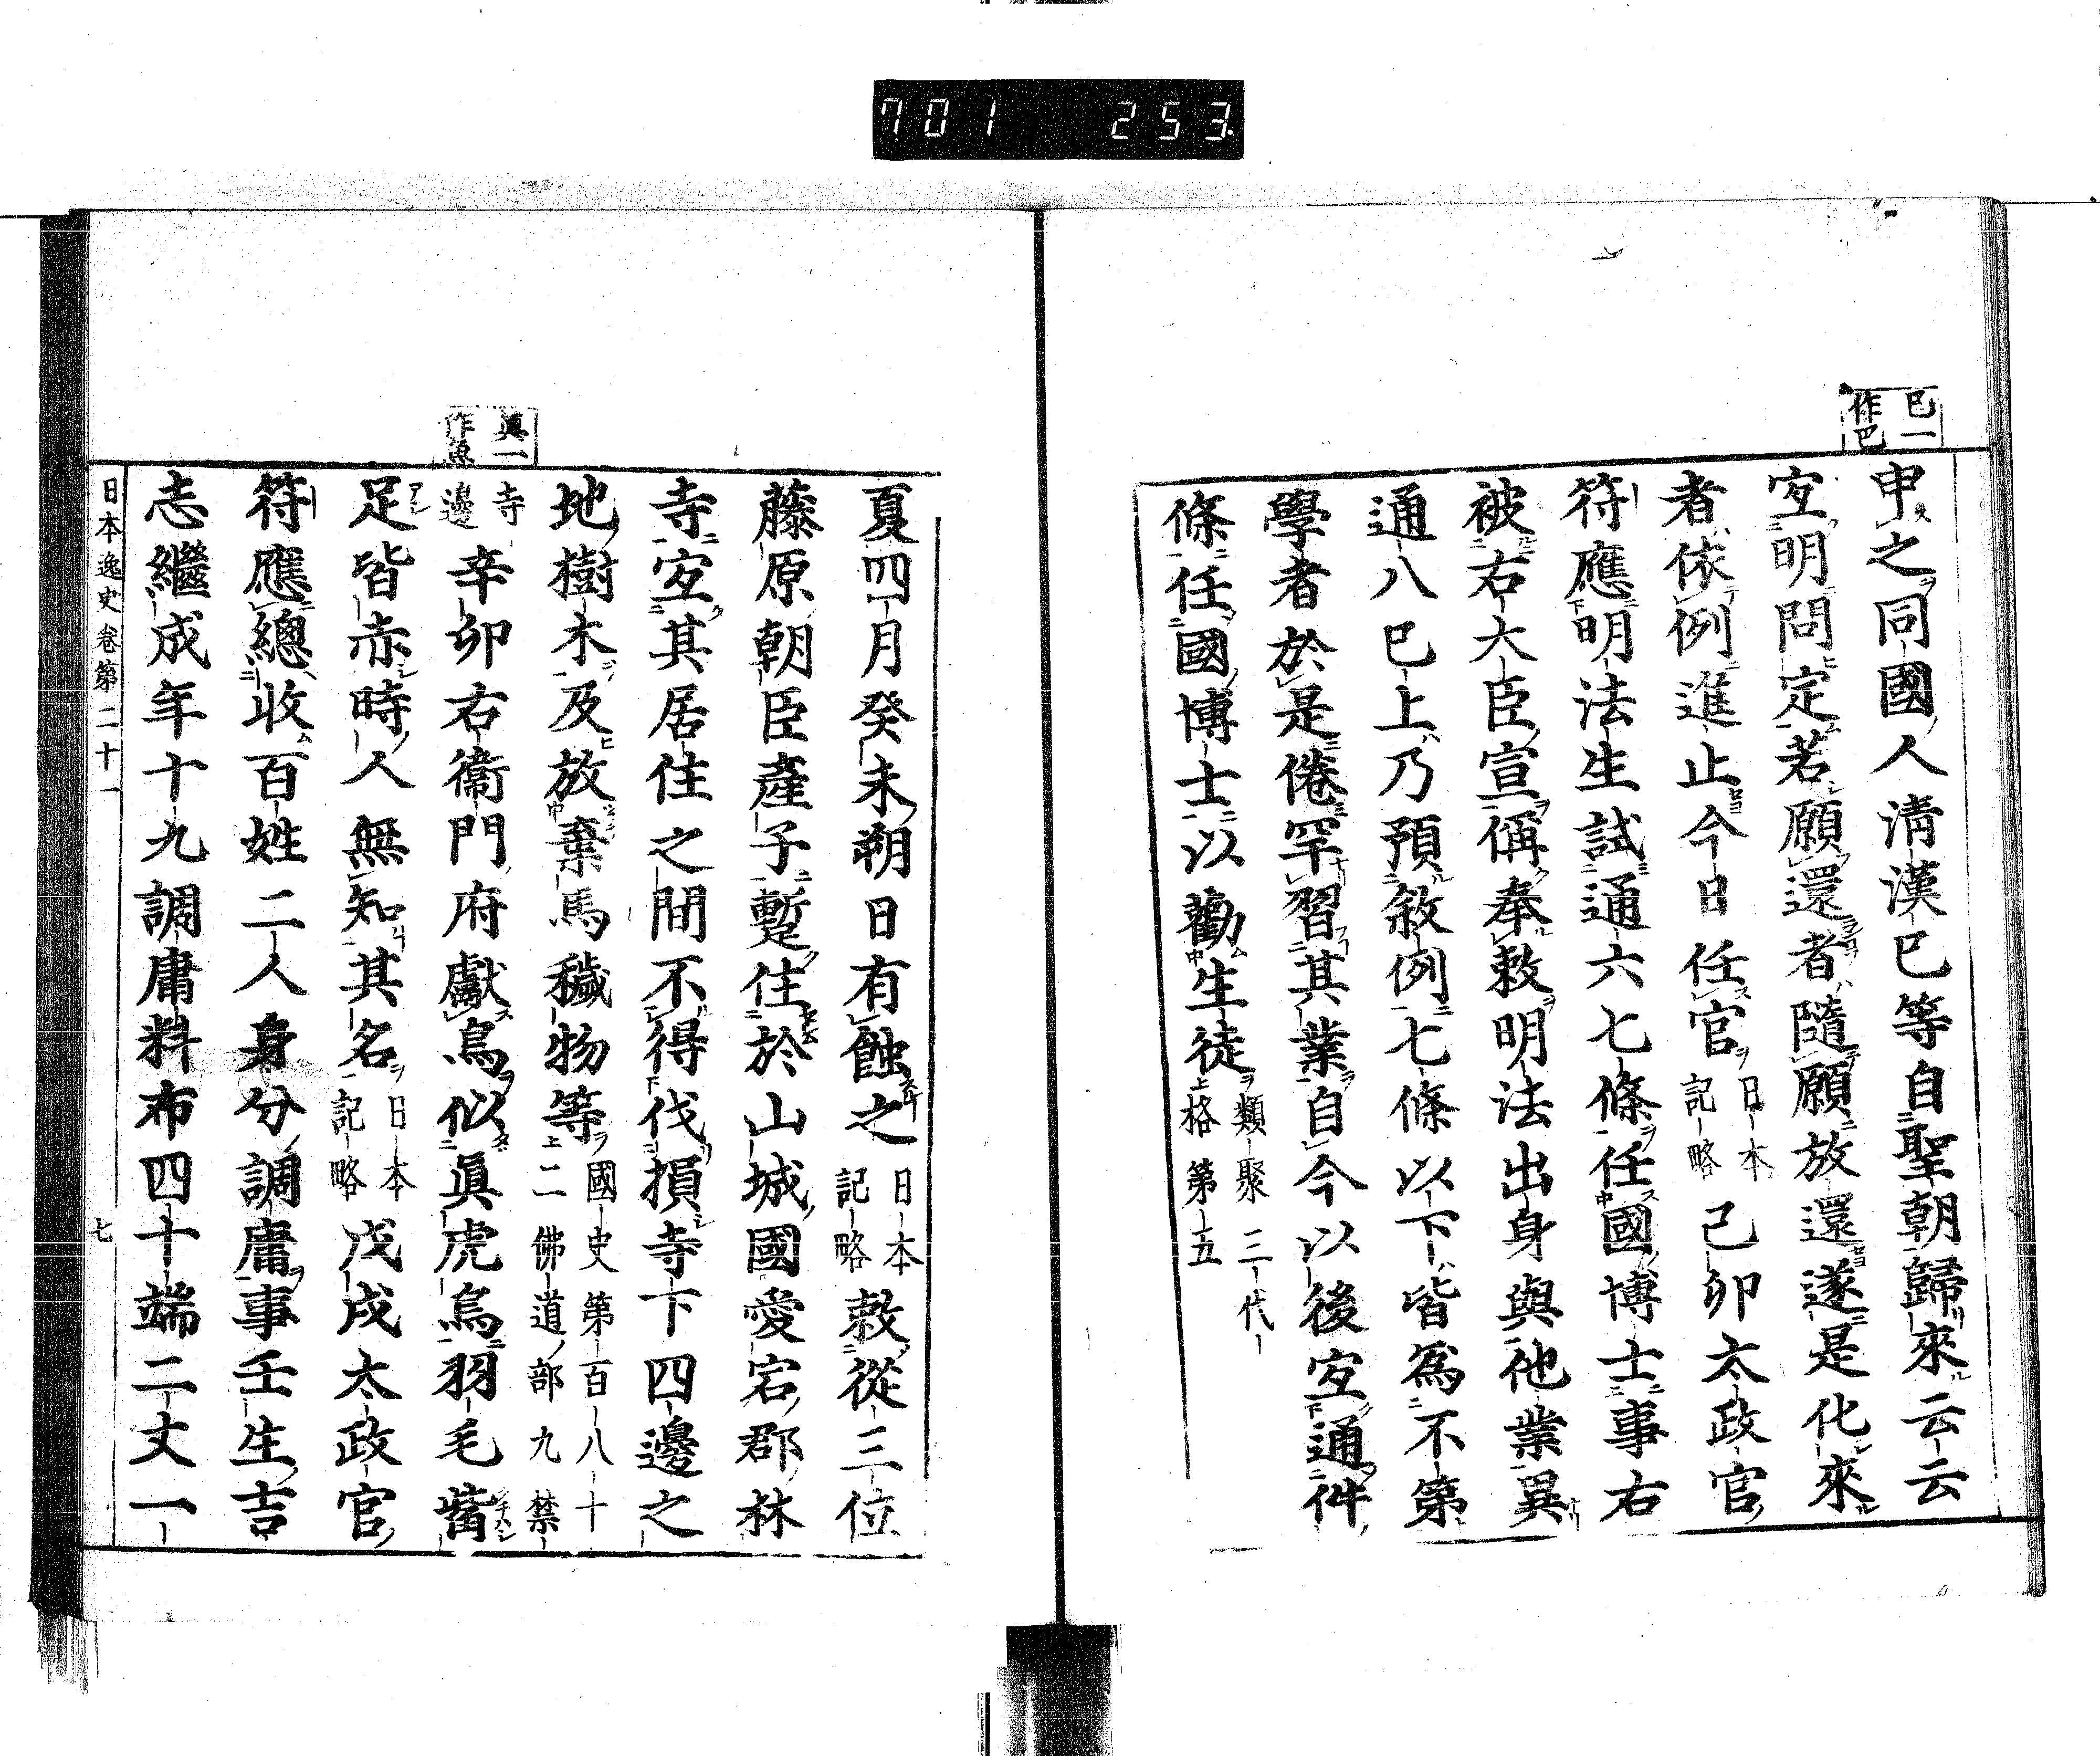 701 253
巳一
作巴
申之同國人清漢巳等自聖朝歸來云云
宜明問定若願還者隨願放還遂是化來
者依例進止今日任官日本記略己卯太政官
符應明法生試通六七條任國博士事右
被右大臣宣偁奉敕明法出身與他業異
通八巳上乃預敘例七條以下皆爲不第
學者於是倦罕習其業自今以後宜通件
條任國博士以勸生徒類聚三代格第五
夏四月癸未朔日有蝕之日本記略敕從三位
藤原朝臣產子蹔住於山城國愛宕郡林
寺宜其居住之間不得伐損寺下四邊之
地樹木及放棄馬穢物等國史第百八十二佛道部九禁
眞一
作魚
寺邊辛卯右衞門府獻烏似眞虎烏羽毛觜
足皆赤時人無知其名日本記略戊戌太政官
符應總收百姓二人身分調庸事壬生吉
志繼成年十九調庸料布四十端二丈一
日本逸史卷第二十一 七